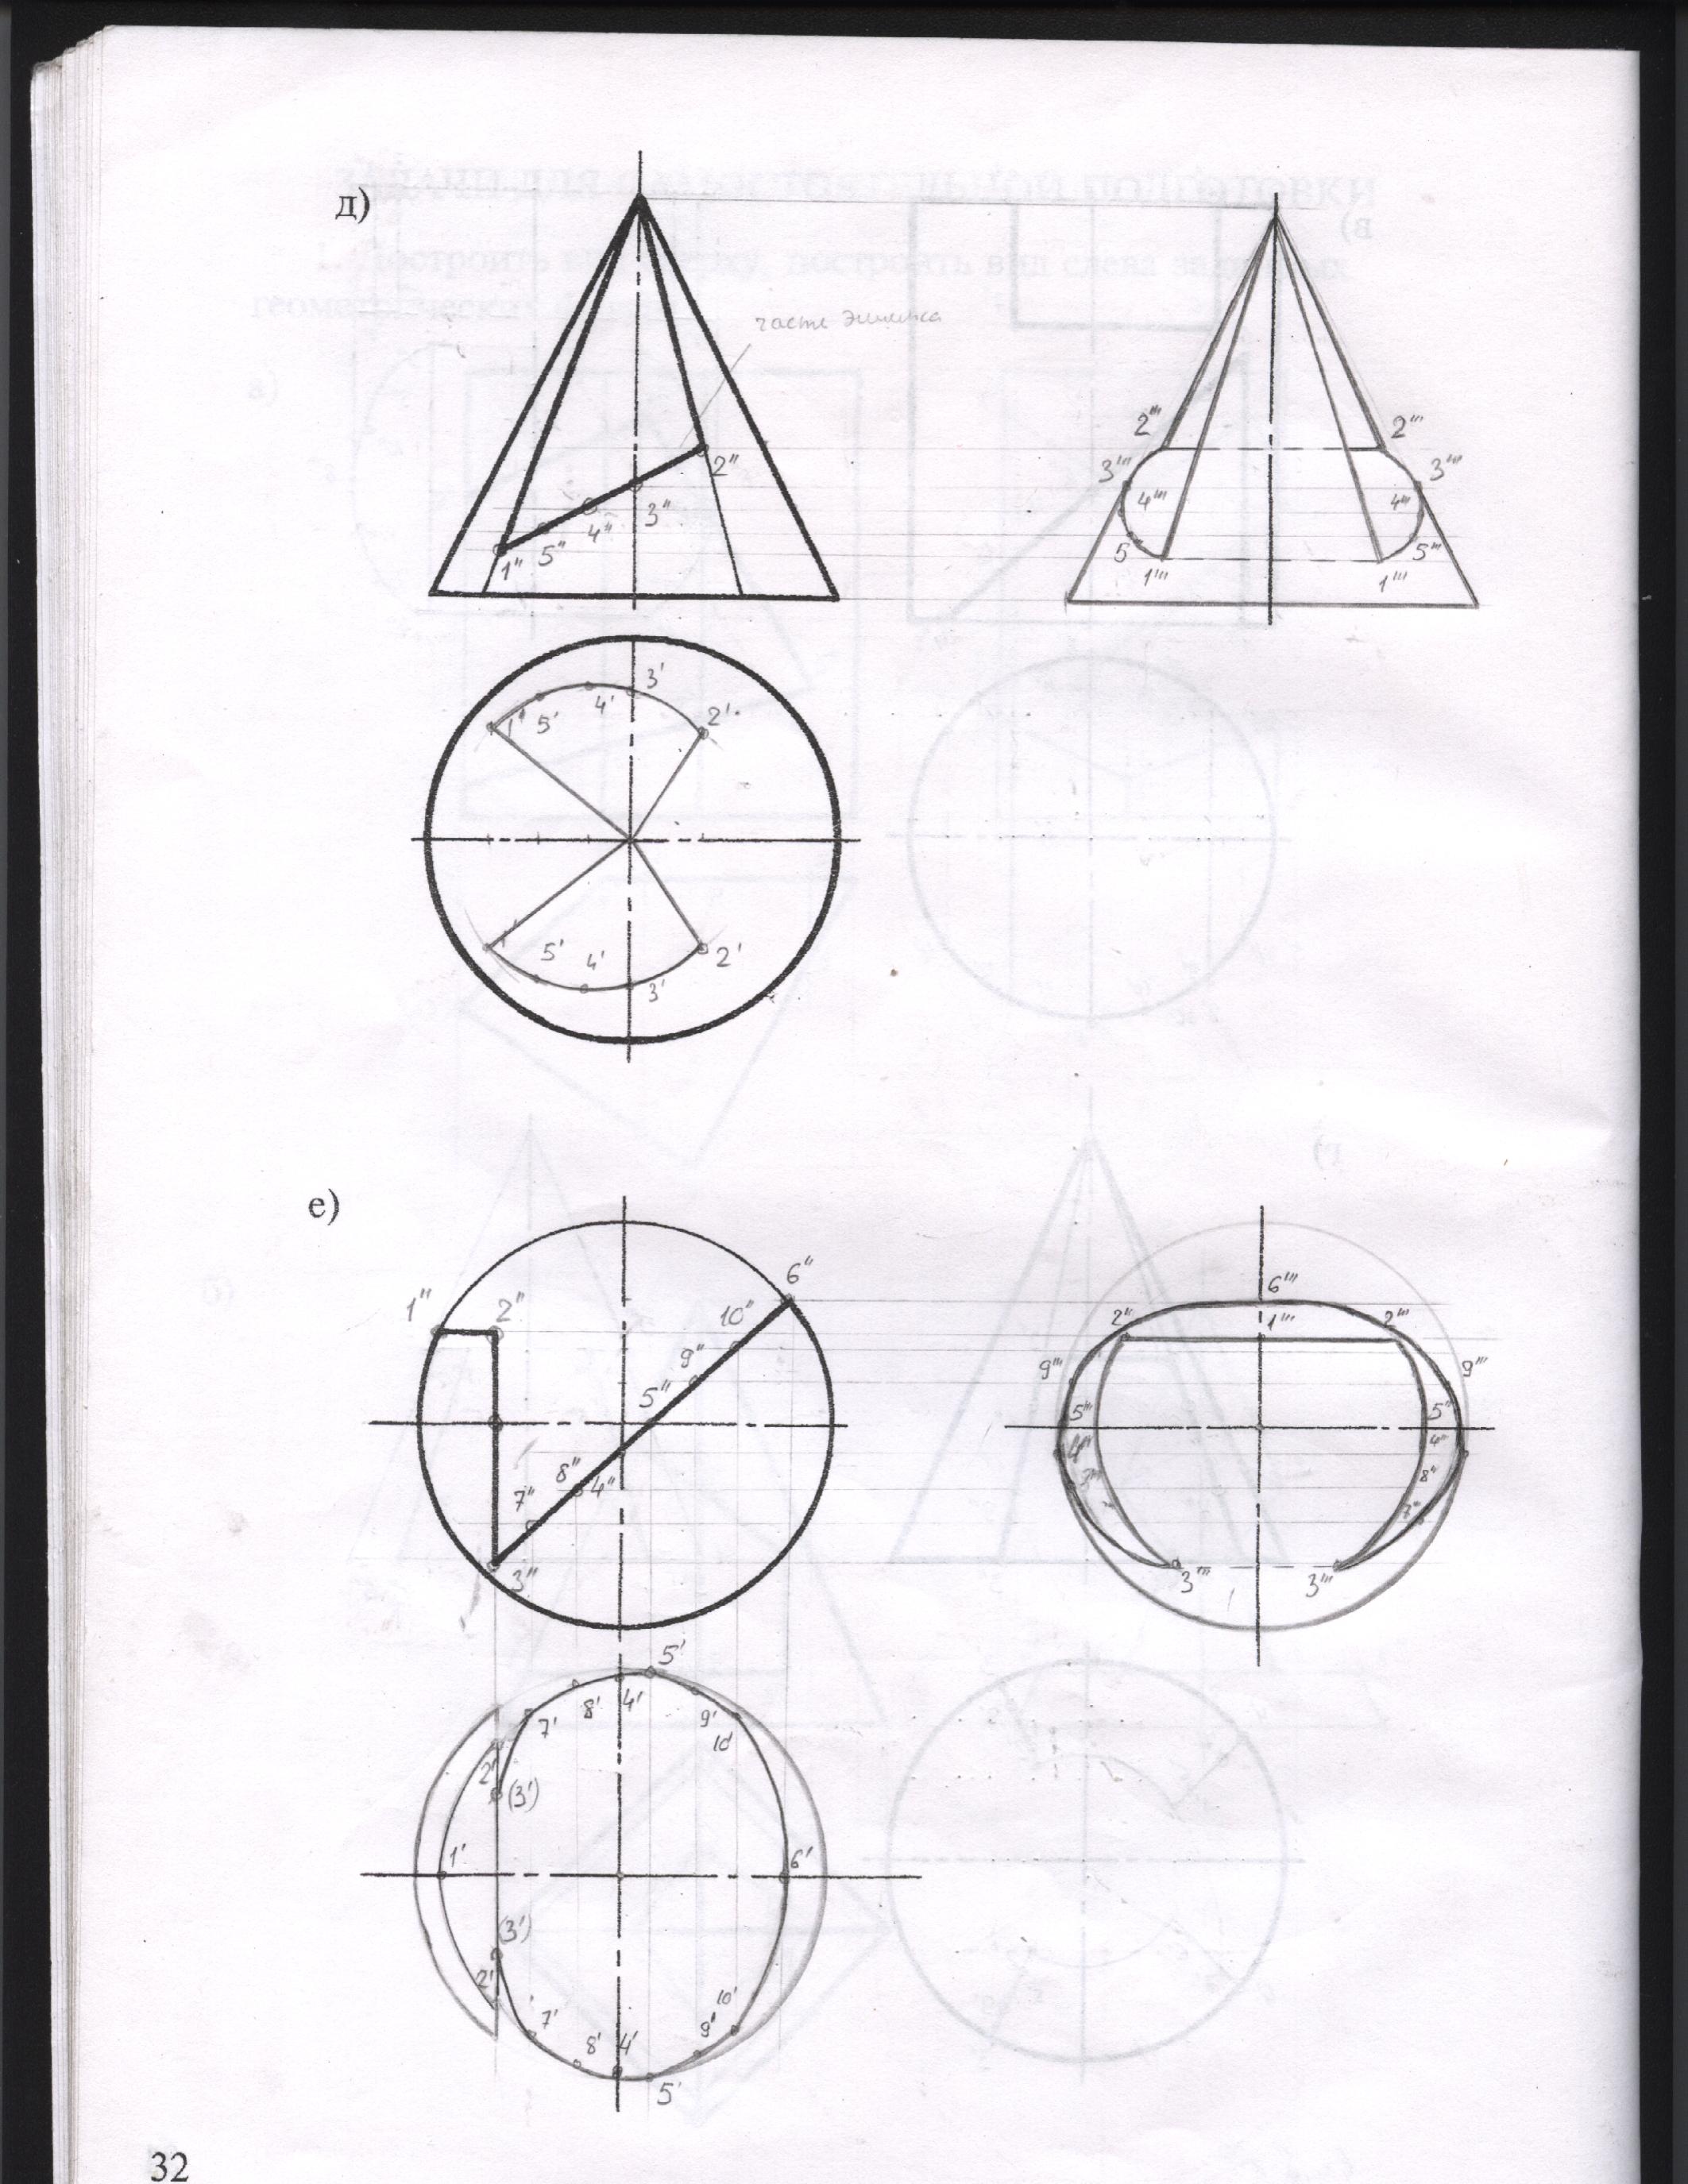 д)
части эллипса
2"
3"
4"
5"
1"
2''' 2'''
3''' 3'''
4''' 4'''
5 5'''
1''' 1'''
3'
1' 5' 4' 2'
1' 5' 4' 3' 2'
е)
6"
1" 2" 10"
9"
5"
8"
7" 4"
3"
6'''
2" 1''' 2'''
9''' 9'''
5''' 5"
4''' 4"
3''' 8"
7"
3''' 3'''
5'
7' 8' 4' 9'
10'
2' (3')
1' 6'
(3')
2' 10'
7' 8' 4' 9'
5'
32